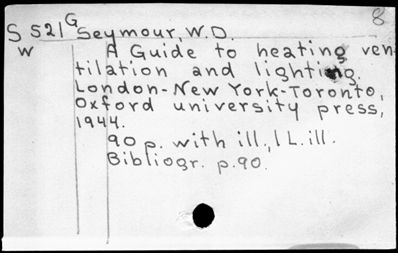 8
S 521 G Seymour, W.D.
W A Guide to heating ven-
tilation and lighting.
London-New York-Toronto,
Oxford university press,
1944.
90 p. with ill., 1 L. ill.
Bibliogr. p. 90.